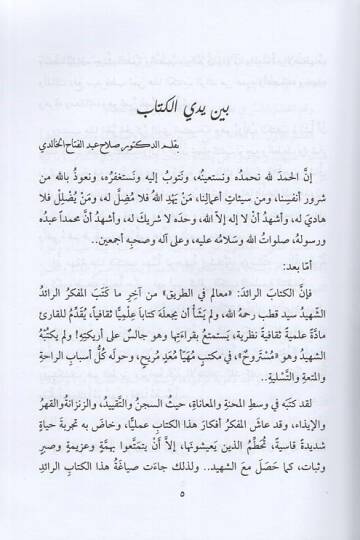 بين يدي الكتاب
بقلم الدكتور صلاح عبد الفتاح الخالدي
إنَّ الحمدَ لله نحمدُه ونستعينُه، ونَتوبُ إليه ونستغفرُه، ونعوذُ بالله من
شرور أنفسِنا، ومن سيئاتِ أعمالِنا، مَنْ يَهْدِ اللهُ فلا مُضِلَّ له، ومَنْ يُضْلِلْ فلا
هاديَ له، وأشهدُ أنْ لا إله إلا الله، وحدَه لا شريك له، وأشهدُ أنَّ محمداً عبدُه
ورسولُه، صلواتُ الله وسَلامُه عليه، وعلى آله وصحبِه أجمعين..
أمّا بعد:
فإنَّ الكتابَ الرائدَ: «معالم في الطريق» من آخِرِ ما كَتَبَ المفكرُ الرائدُ
الشهيدُ سيد قطب رحمهُ الله، ولم يَشَأْ أن يجعلَه كتاباً عِلْميّاً ثقافياً، يُقَدِّمُ للقارئ
مادّةً علميةً ثقافيةً نظرية، يَستمتعُ بقراءتِها وهو جالسٌ على أريكتِه! ولم يكتُبْهُ
الشهيدُ وهو «مُسْتَروح»، في مكتبٍ مُهَيّأ مُعَدٍّ مُريحٍ، وحولَه كُلُّ أسبابِ الراحةِ
والمتعةِ والتَّسْلية..
لقد كتَبَه في وسطِ المحنةِ والمعاناة، حيثُ السجنُ والتَّقييدُ، والزنزانةُ والقهرُ
والإيذاء، وقد عاشَ المفكرُ أفكارَ هذا الكتابِ عمليّاً، وخاضَ به تجربةَ حياةٍ
شديدةٍ قاسيةٍ، تُحَطِّمُ الذين يَعيشونَها، إلاّ أنْ يتمتَّعوا بهمَّةٍ وعزيمةٍ وصبرٍ
وثبات، كما حَصَلَ معَ الشهيد.. ولذلك جاءَت صياغَةُ هذا الكتابِ الرائدِ
٥